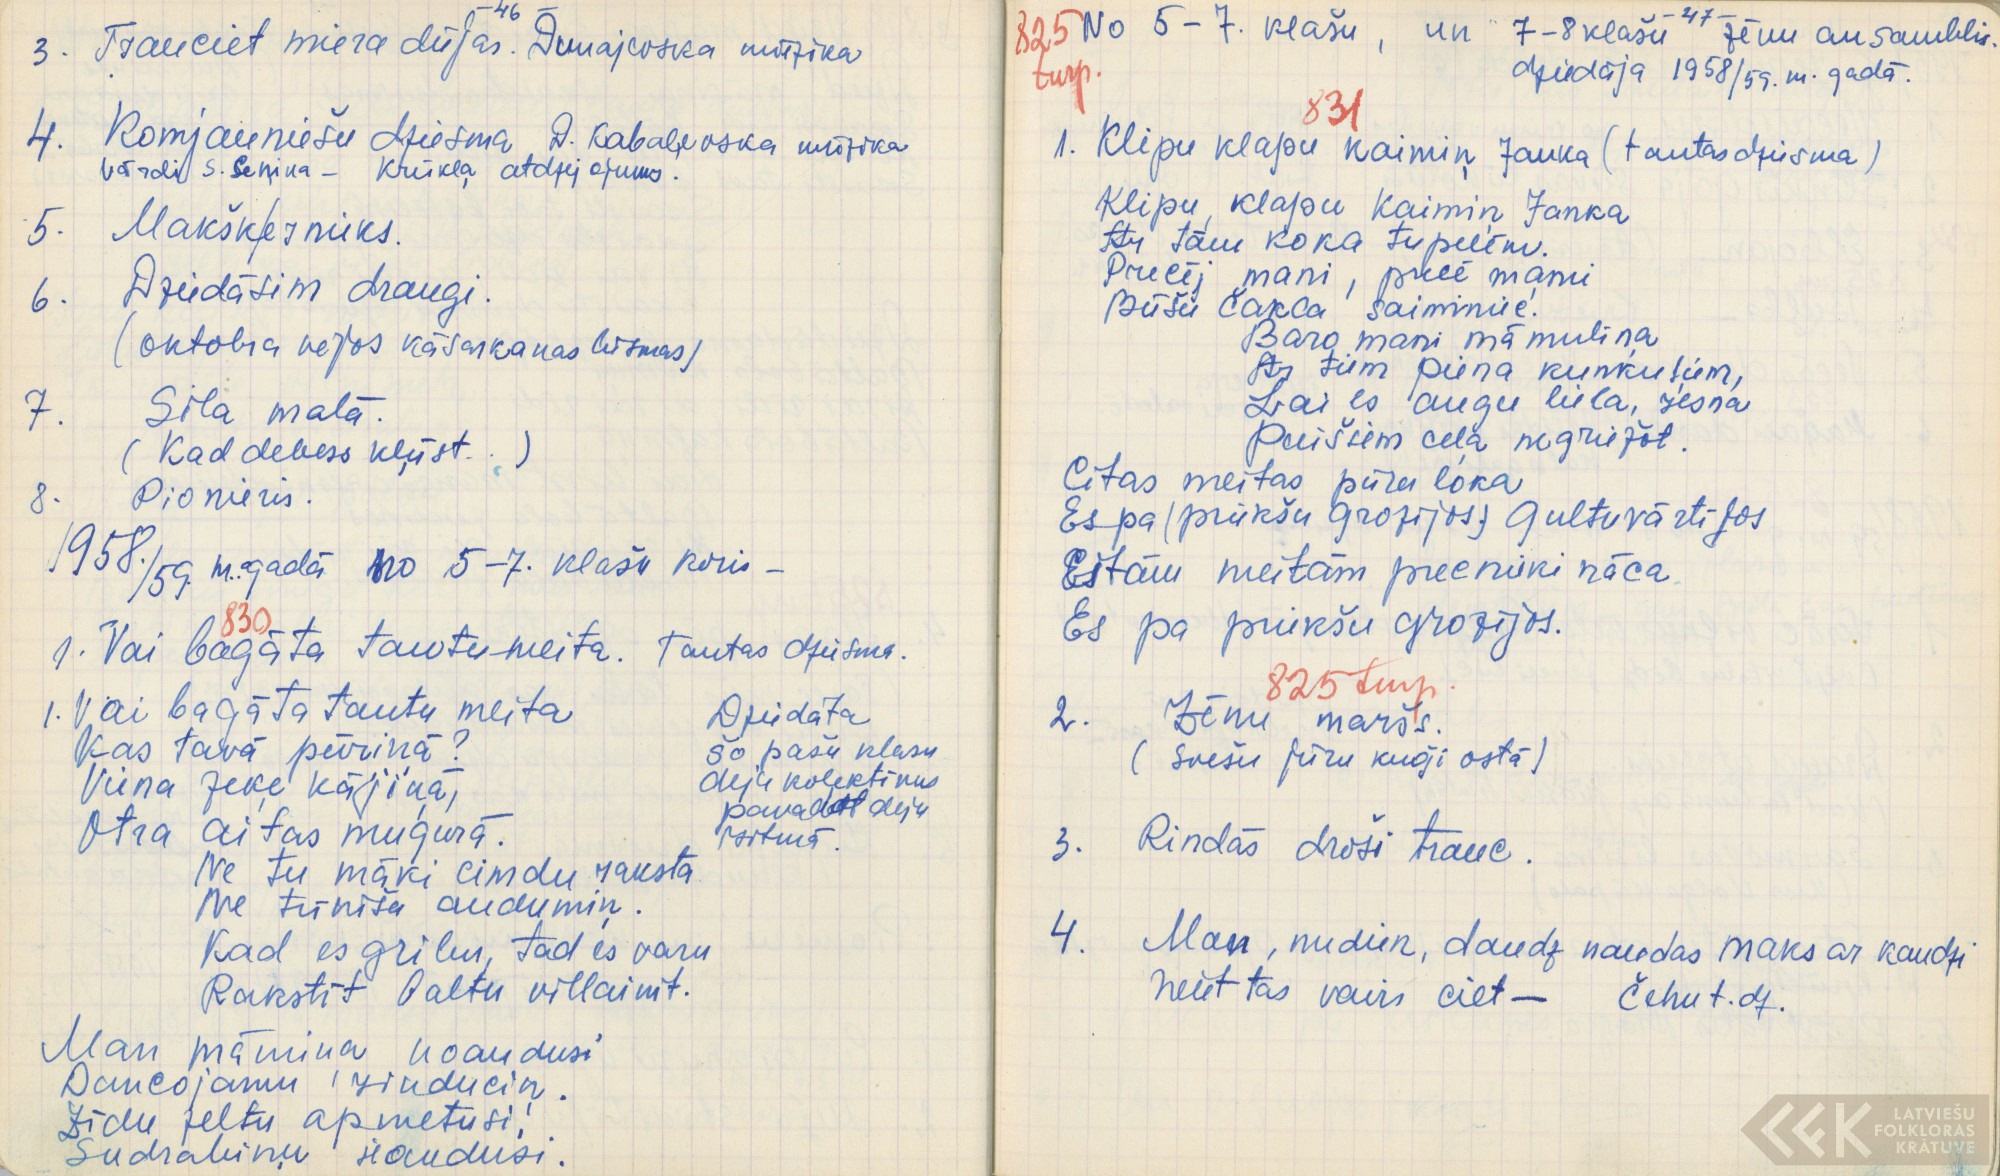 -46
3. Trauciet miera dūjas. Dunajevska mūzika
4. Komjauniešu dziesma D. Kabaļevska mūzika
vārdi S. Seņina - Krūkļa atdzejojums.
5. Makšķernieks.
6. Dziedāsim draugi.
(oktobra vējos kāsarkanas liesmas)
7. Sila malā.
(Kad debess kļūst . . )
8. Pionieris.
1958./59. m. gadā no 5-7. klašu koris -
830
1. Vai bagāta tautu meita. Tautas dziesma.
1. Vai bagāta tautu meita
Kas tavā pūriņā?
Viena zeķe kājiņā,
Otra aitas mugurā.
Ne tu māki cimdu raksta
Ne tūniša audumiņ.
Kad es gribu, tad es varu
Rakstīt baltu villainīt.
Man māmiņa noaudusi
Dancojamu zinduciņ.
Zīdu zeltu apmetusi,
Sudrabiņu ieaudusi.
Dziedāta
šo pašu klasu
deju kolektīvus
pavadot deju
ritmā.
-47-
825 No 5-7. klašu, un 7-8 klašu zēnu ansamblis.
turp. dziedāja 1958/59. m. gadā.
831
1. Klipu klapu kaimiņ Janka (tautasdziesma)
Klipu, klapu kaimiņ Janka
Ar tām koka tupelēm.
Precēj mani, precē mani
Būšu čakla saimniec.
Baro mani māmuliņa
Ar tiem piena kunkuliem,
Lai es augu liela, resna
Puišiem ceļa negriežot.
Citas meitas pūru loka
Es pa (priekšu grozījos) gultuvārtījos
Citām meitām precnieki nāca
Es pa priekšu grozījos.
825 turp.
2. Zēnu maršs.
(svešu jūru kuģi ostā)
3. Rindās droši trauc.
4. Man, nudien, daudz naudas maks ar kaudzi
neiet tas vairs ciet — Čehu t. dz.
LATVIEŠU
FOLKLORAS
KRĀTUVE